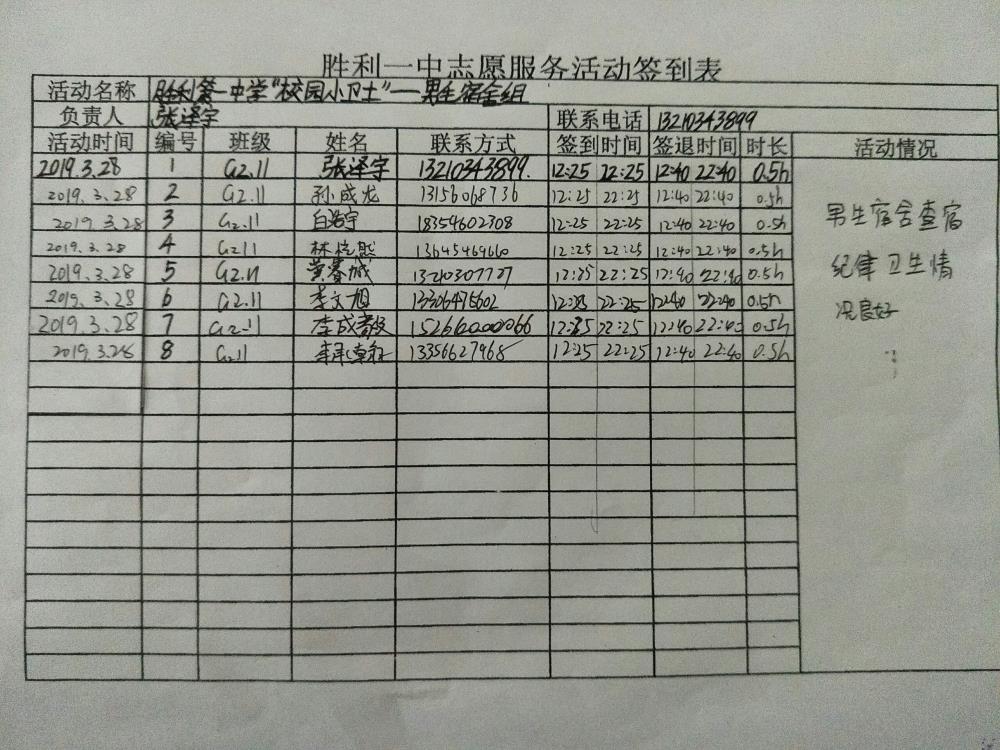 胜利一中志愿服务活动签到表
活动名称 胜利第一中学"校园小卫士"——男生宿舍组
负责人 张泽宇 联系电话 13210343899
活动时间 编号 班级 姓名 联系方式 签到时间 签退时间 时长 活动情况
2019.3.28 1 G2.11 张泽宇 13210343899. 12:25 22:25 12:40 22:40 0.5h
2019.3.28 2 G2.11 孙成龙 13156068736 12:25 22:25 12:40 22:40 0.5h
2019.3.28 3 G2.11 白浩宇 18354602308 12:25 22:25 12:40 22:40 0.5h
2019.3.28 4 G2.11 林 13645469660 12:25 22:25 12:40 22:40 0.5h
2019.3.28 5 G2.11 12:25 22:25 12:40 22:40 0.5h
2019.3.28 6 G2.11 李文旭 13306475602 12:25 22:25 12:40 22:40 0.5h
2019.3.28 7 G2.11 李成毅 12:25 22:25 12:40 22:40 0.5h
2019.3.28 8 G2.11 13356627968 12:25 22:25 12:40 22:40 0.5h
男生宿舍查宿
纪律卫生情
况良好